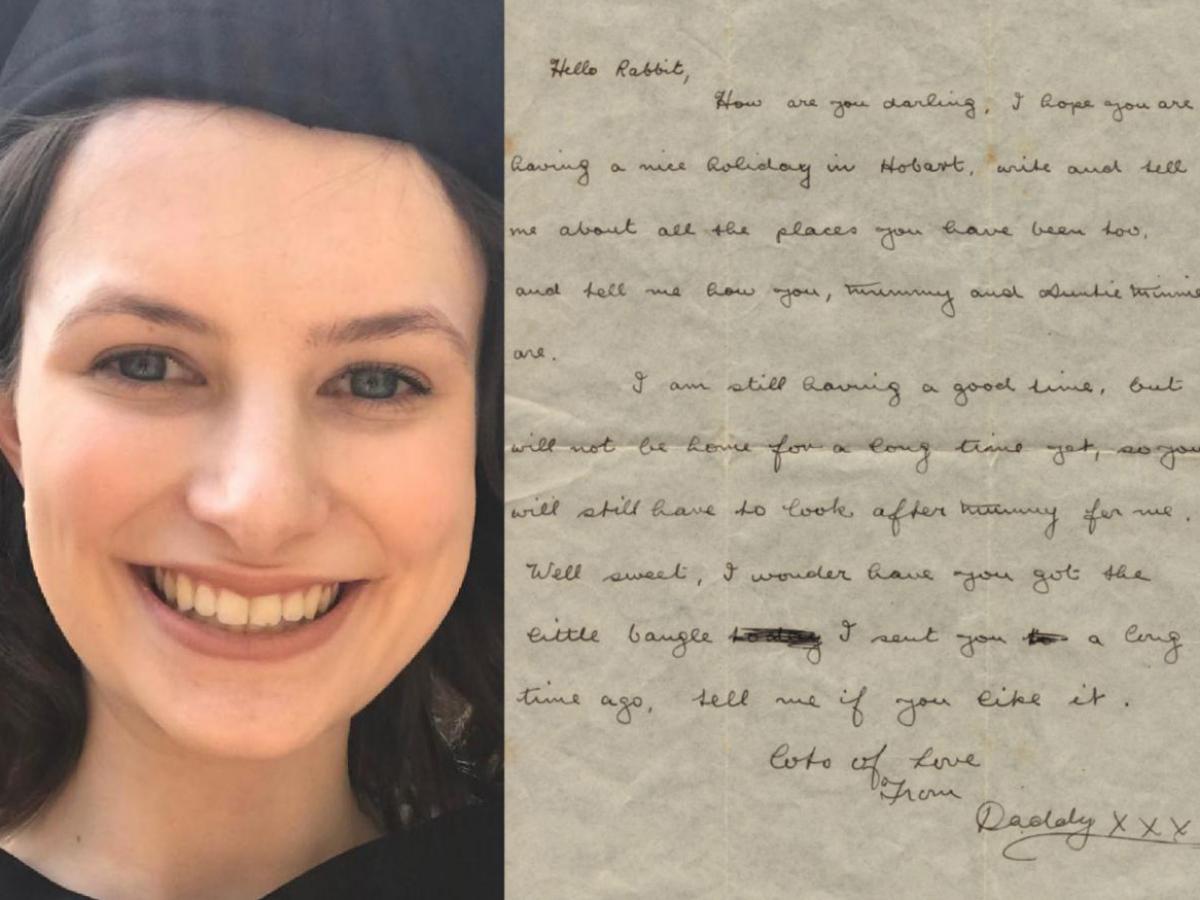 Hello Rabbit,
How are you darling, I hope you are
having a nice holiday in Hobart, write and tell
me about all the places you have been too,
and tell me how you, Mummy and Auntie Minnie
are.
I am still having a good time, but
will not be home for a long time yet, so you
will still have to look after Mummy for me.
Well sweet, I wonder have you got the
little bangle I sent you a long
time ago, tell me if you like it.
Lots of Love
From
Daddy XXX